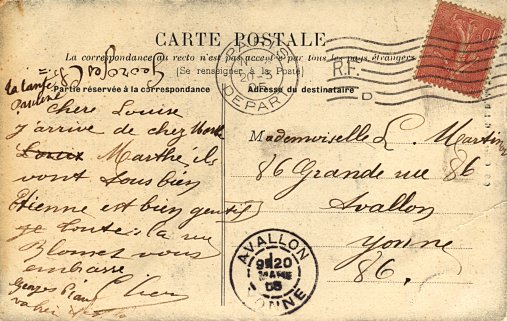 CARTE POSTALE
La correspondance au recto n'est pas acceptée par tous les pays étrangers
(Se renseigner à la Poste)
Partie réservée à la correspondance
Adresse du destinataire
PARIS
DEPART
R.F.
la tante
Pauline
Georges
Chère Louise
J'arrive de chez
Marthe ils
vont tous bien
Etienne est bien gentil
toute la rue
Blomet vous
embrasse
Georges
Mademoiselle L. Martin
86 Grande rue 86
Avallon
Yonne
86.
AVALLON
9E20
MARS
YONNE